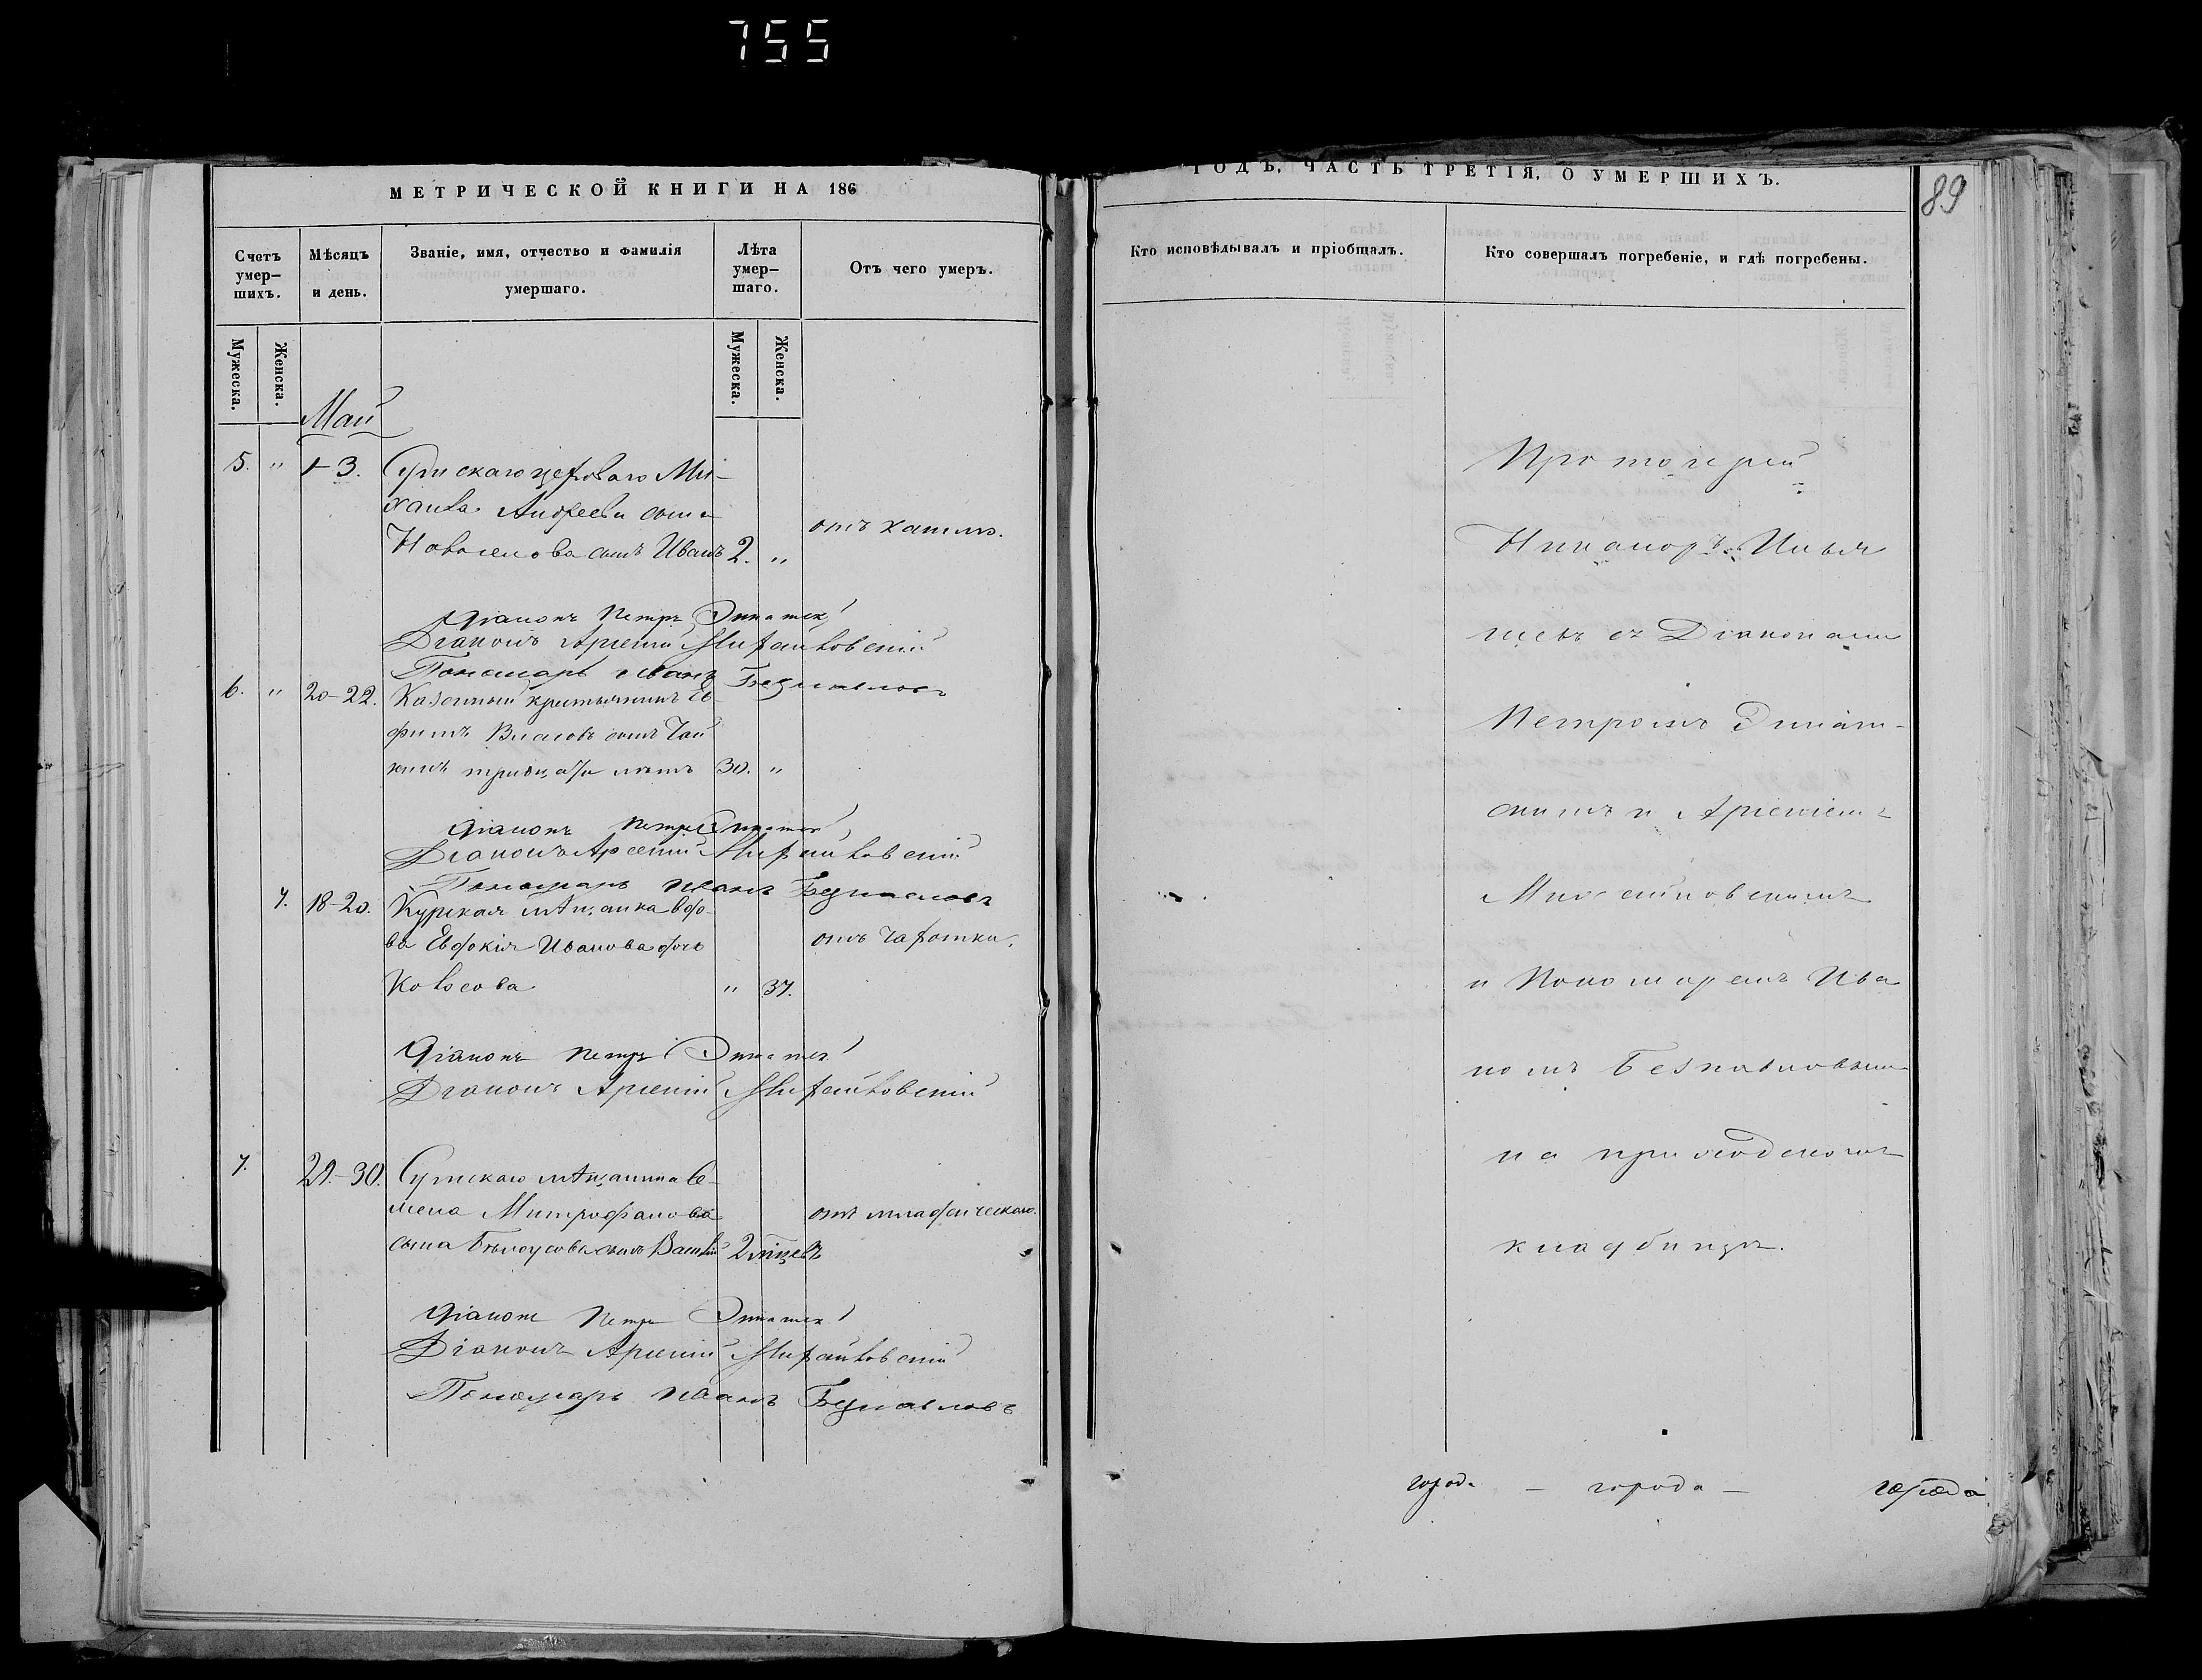 755
МЕТРИЧЕСКОЙ КНИГИ НА 186
Счетъ умер-шихъ.
Мѣсяцъ и день.
Званіе, имя, отчество и фамилія умершаго.
Лѣта умер-шаго.
Отъ чего умеръ.
Мужеска.
Женска.
Мужеска.
Женска.
Май
5. " 1-3. Сумскаго цеховаго Ми-
хаила Андреева сына
Новоселова сынъ Иванъ 2. " отъ кашлю.
Діаконъ Петръ
Діаконъ Арсеній
Пономарь Иванъ Безпаловъ
6. " 20-22. Казенный крестьянинъ Ев-
фимъ Власовъ сынъ Чай
кинъ тридцати лѣтъ 30. "
Діаконъ Петръ
Діаконъ Арсеній
Пономарь Иванъ Безпаловъ
7. 18-20. Курская мѣщанка вдо-
ва Евдокія Иванова дочь отъ чахотки.
Колосова " 37.
Діаконъ Петръ
Діаконъ Арсеній
7. 29.-30. Сумскаго мѣщанина Се-
мена Митрофанова отъ младенческаго.
сына Бѣлоусова сынъ Василій 2 мѣсцевъ
Діаконъ Петръ
Діаконъ Арсеній
Пономарь Иванъ Безпаловъ
ГОДЪ, ЧАСТЬ ТРЕТІЯ, О УМЕРШИХЪ.
89
Кто исповѣдывалъ и пріобщалъ.
Кто совершалъ погребеніе, и гдѣ погребены.
Протоіерей
Никаноръ Ильи
съ Діаконами
Петромъ
и Арсеніемъ
и Пономаремъ Ива
номъ Безпаловымъ
на приходскомъ
кладбищѣ.
города - города - города